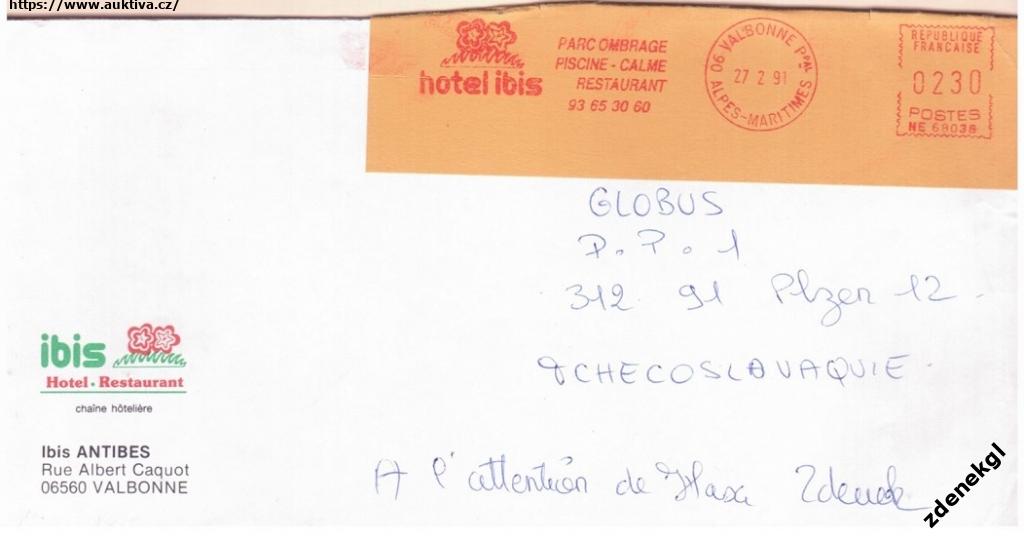 https://www.auktiva.cz/
hotel ibis
PARC OMBRAGE
PISCINE - CALME
RESTAURANT
93 65 30 60
06 VALBONNE PPAL
27 2 91
ALPES-MARITIMES
REPUBLIQUE
FRANCAISE
0230
POSTES
NE 68036
GLOBUS
P.P. 1
312 91 Plzen 12
TCHECOSLAVAQUIE
ibis
Hotel • Restaurant
chaîne hôtelière
Ibis ANTIBES
Rue Albert Caquot
06560 VALBONNE
A l'attention de Zdenek
zdenekgl